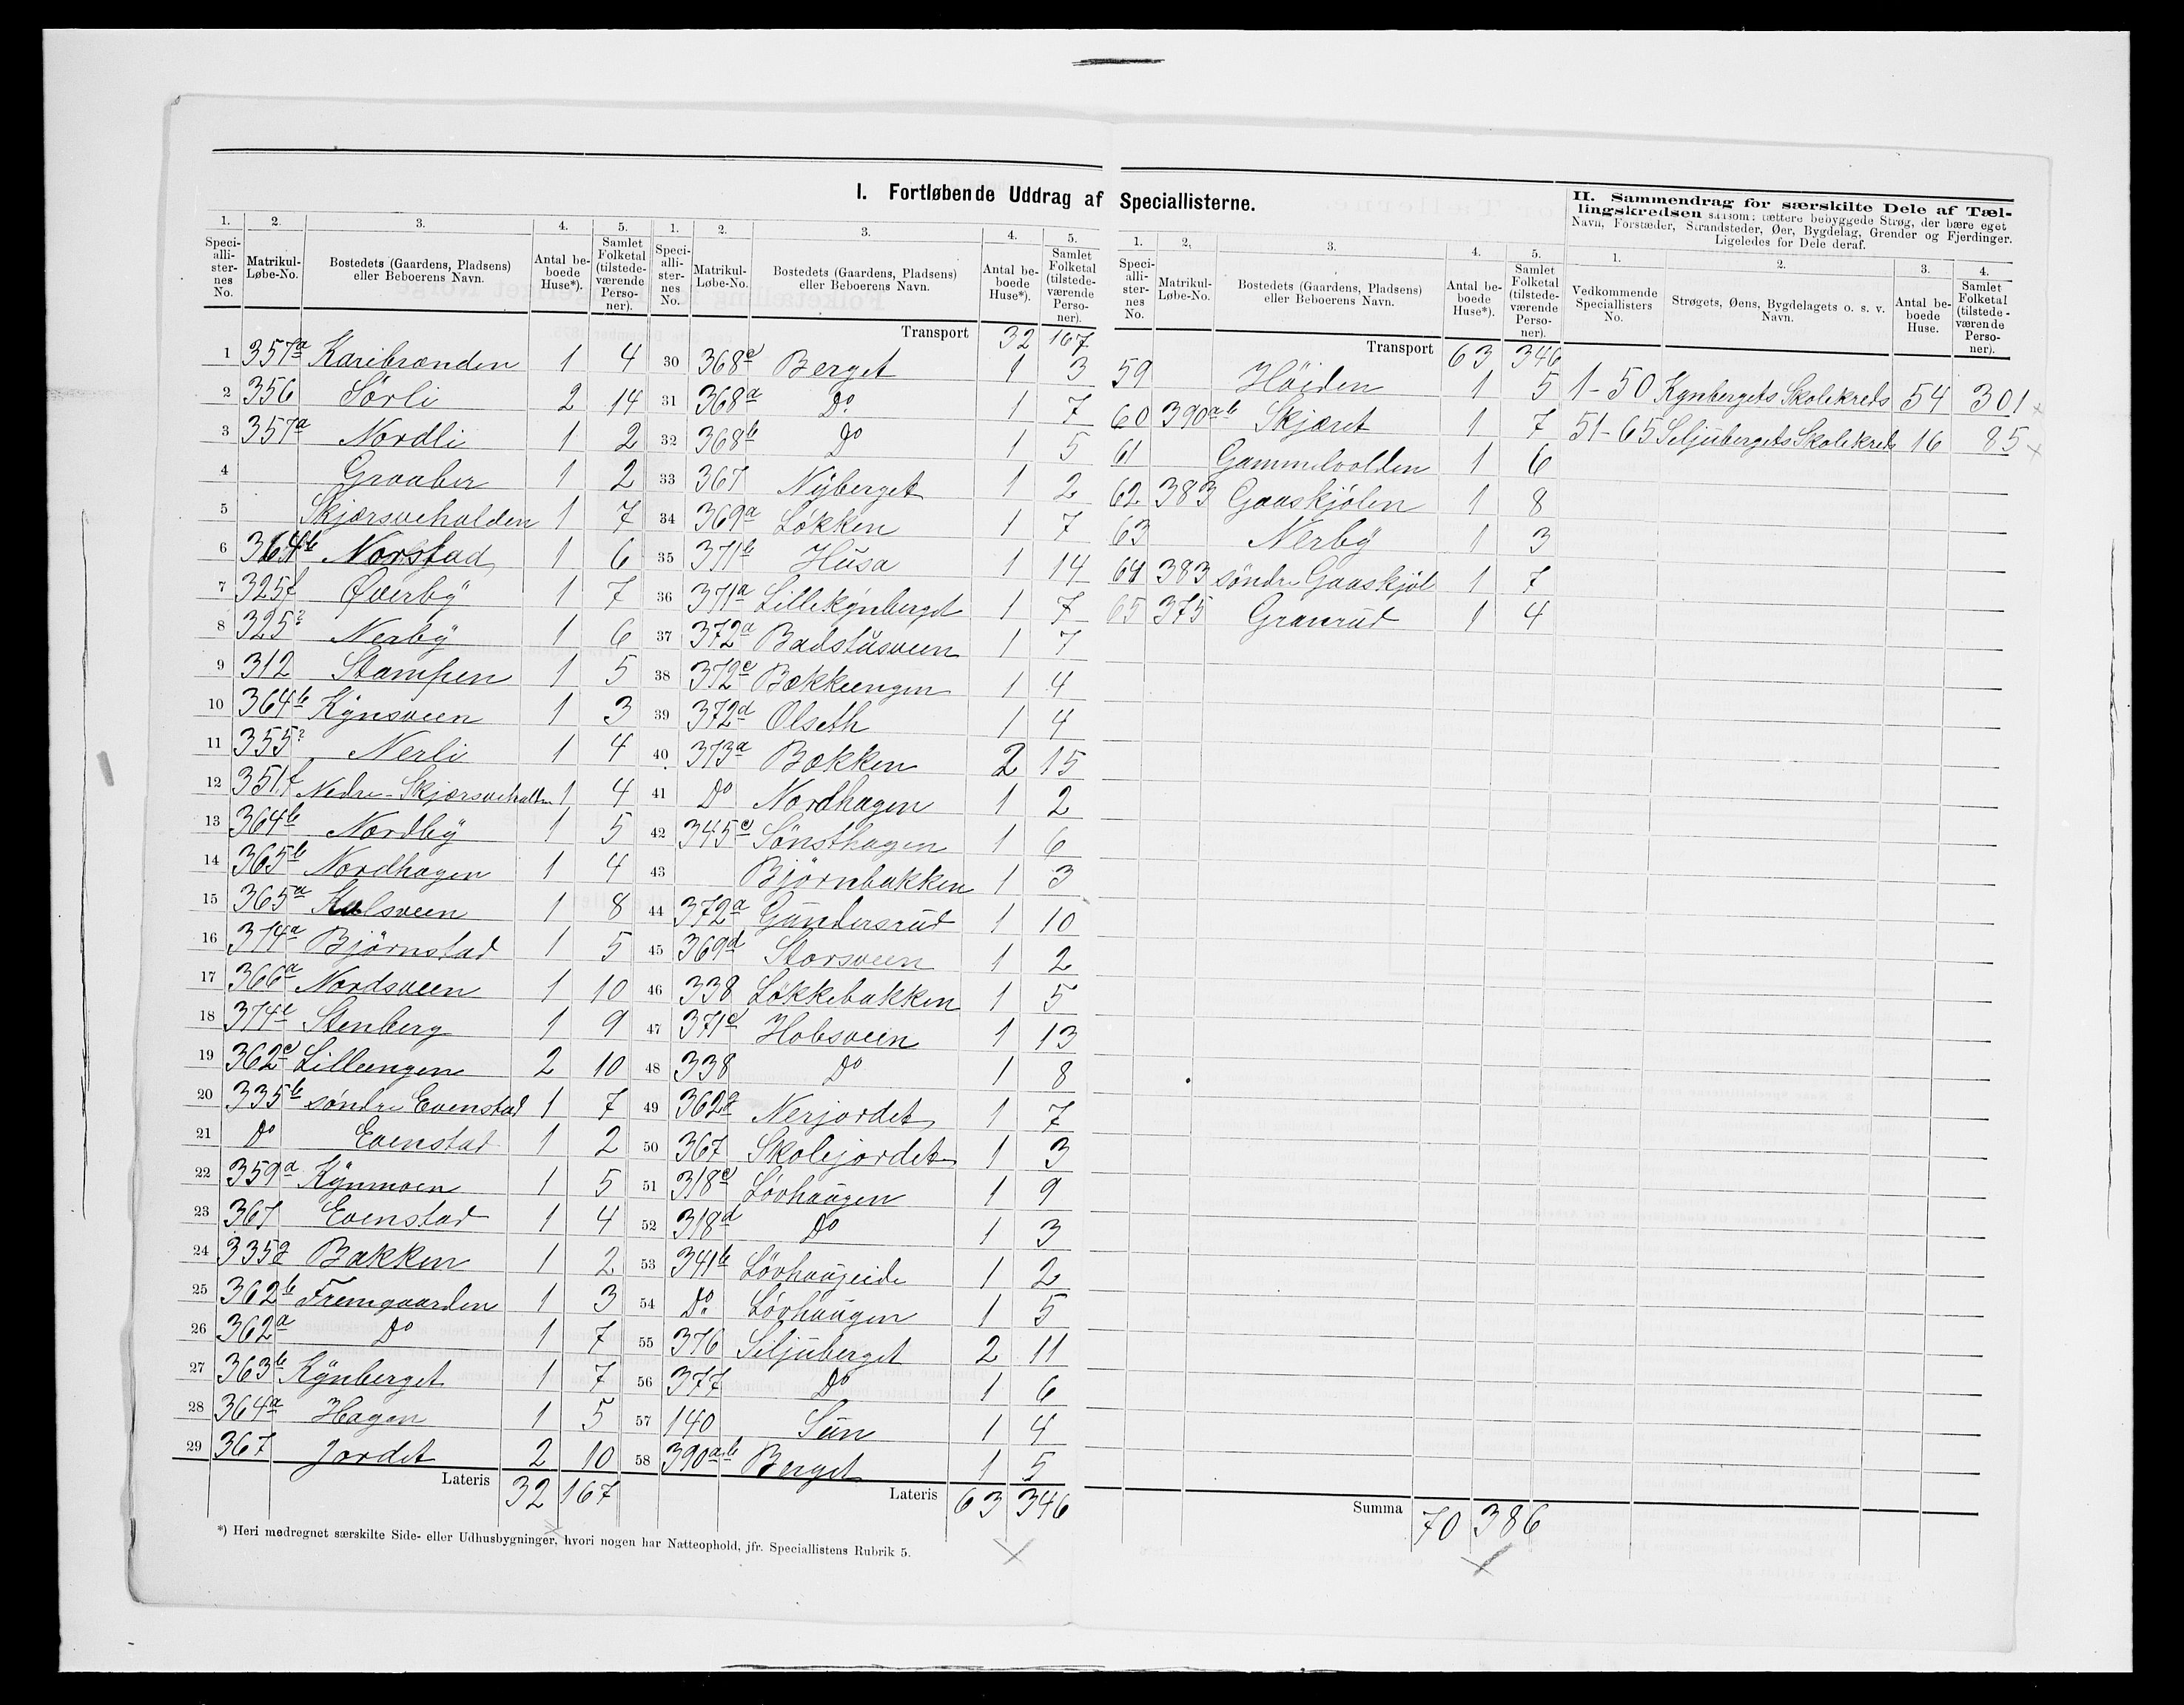 I. Fortløbende Uddrag af Speciallisterne.
1. 2. 3. 4. 5.
Speci-alli-ster-nes No. | Matrikul-Løbe-No. | Bostedets (Gaardens, Pladsens) eller Beboerens Navn. | Antal be-boede Huse*). | Samlet Folketal (tilstede-værende Perso-ner).
1 357a Karibranden 1 4
2 356 Sørli 2 14
3 357a Nordli 1 2
4 Graaber 1 2
5 Skjærsvehalden 1 7
6 364b Norstad 1 6
7 325f Øverby 1 7
8 325 Nerby 1 6
9 312 Stampen 1 5
10 364b Kynsveen 1 3
11 355 Nerli 1 4
12 351f Nedre-Skjærsvehalden 1 4
13 364b Nordby 1 5
14 365b Nordhagen 1 4
15 365a Kulsveen 1 8
16 374a Bjørnstad 1 5
17 366a Nordsveen 1 10
18 374 Stenberg 1 9
19 362c Lilleengen 2 10
20 335b søndre Evenstad 1 7
21 Do Evenstad 1 2
22 359a Kynmoen 1 5
23 367 Evenstad 1 4
24 335a Bakken 1 2
25 362b Fremgaarden 1 3
26 362a Do 1 7
27 363b Kynberget 1 7
28 364a Hagen 1 5
29 367 Jordet 2 10
Lateris 32 167
*) Heri medregnet særskilte Side- eller Udhusbygninger, hvori nogen har Natteophold, jfr. Speciallistens Rubrik 5.
1. 2. 3. 4. 5.
Speci-alli-ster-nes No. | Matrikul-Løbe-No. | Bostedets (Gaardens, Pladsens) eller Beboerens Navn. | Antal be-boede Huse*). | Samlet Folketal (tilstede-værende Perso-ner).
Transport 32 167
30 368c Berget 1 3
31 368a Do. 1 7
32 368b Do 1 5
33 367 Nyberget 1 2
34 369a Løkken 1 7
35 371b Husa 1 14
36 371a Lillekynberget 1 7
37 372a Badstusveen 1 7
38 372c Bækkeengen 1 4
39 372d Olseth 1 4
40 373a Bækken 2 15
41 Do Nordhagen 1 2
42 345c Sønsthagen 1 6
43 Bjørnbakken 1 3
44 372a Gundersrud 1 10
45 369d Storsveen 1 2
46 338 Løkkebakken 1 5
47 371c Hobsveen 1 13
48 338 Do 1 8
49 362a Nerjordet 1 7
50 367 Skolejordet 1 3
51 318c Løvhaugen 1 9
52 318d Do 1 3
53 341b Løvhaugeide 1 2
54 Do. Løvhaugen 1 5
55 376 Siljuberget 2 11
56 377 Do 1 6
57 140 Sun 1 4
58 390a.b Berget 1 5
Lateris 63 346
1. 2. 3. 4. 5.
Speci-alli-ster-nes No. | Matrikul-Løbe-No. | Bostedets (Gaardens, Pladsens) eller Beboerens Navn. | Antal be-boede Huse*). | Samlet Folketal (tilstede-værende Perso-ner).
Transport 63 346
59 Høiden 1 5
60 390ab Skjæret 1 7
61 Gammelvolden 1 6
62 383 Gaaskjølen 1 8
63 Nerby 1 3
64 383 søndre Gaaskjøl 1 7
65 375 Granrud 1 4
Summa 70 386
II. Sammendrag for særskilte Dele af Tæl-
lingskredsen saasom: tættere bebyggede Strøg, der bære eget
Navn, Forstæder, Strandsteder, Øer, Bygdelag, Grender og Fjerdinger.
Ligeledes for Dele deraf.
1. 2. 3. 4.
Vedkommende Speciallisters No. | Strøgets, Øens, Bygdelagets o. s. v. Navn. | Antal be-boede Huse. | Samlet Folketal (tilstede-værende Perso-ner).
1-50 Kynbergets Skolekreds 54 301
51-65 Siljubergets Skolekreds 16 85